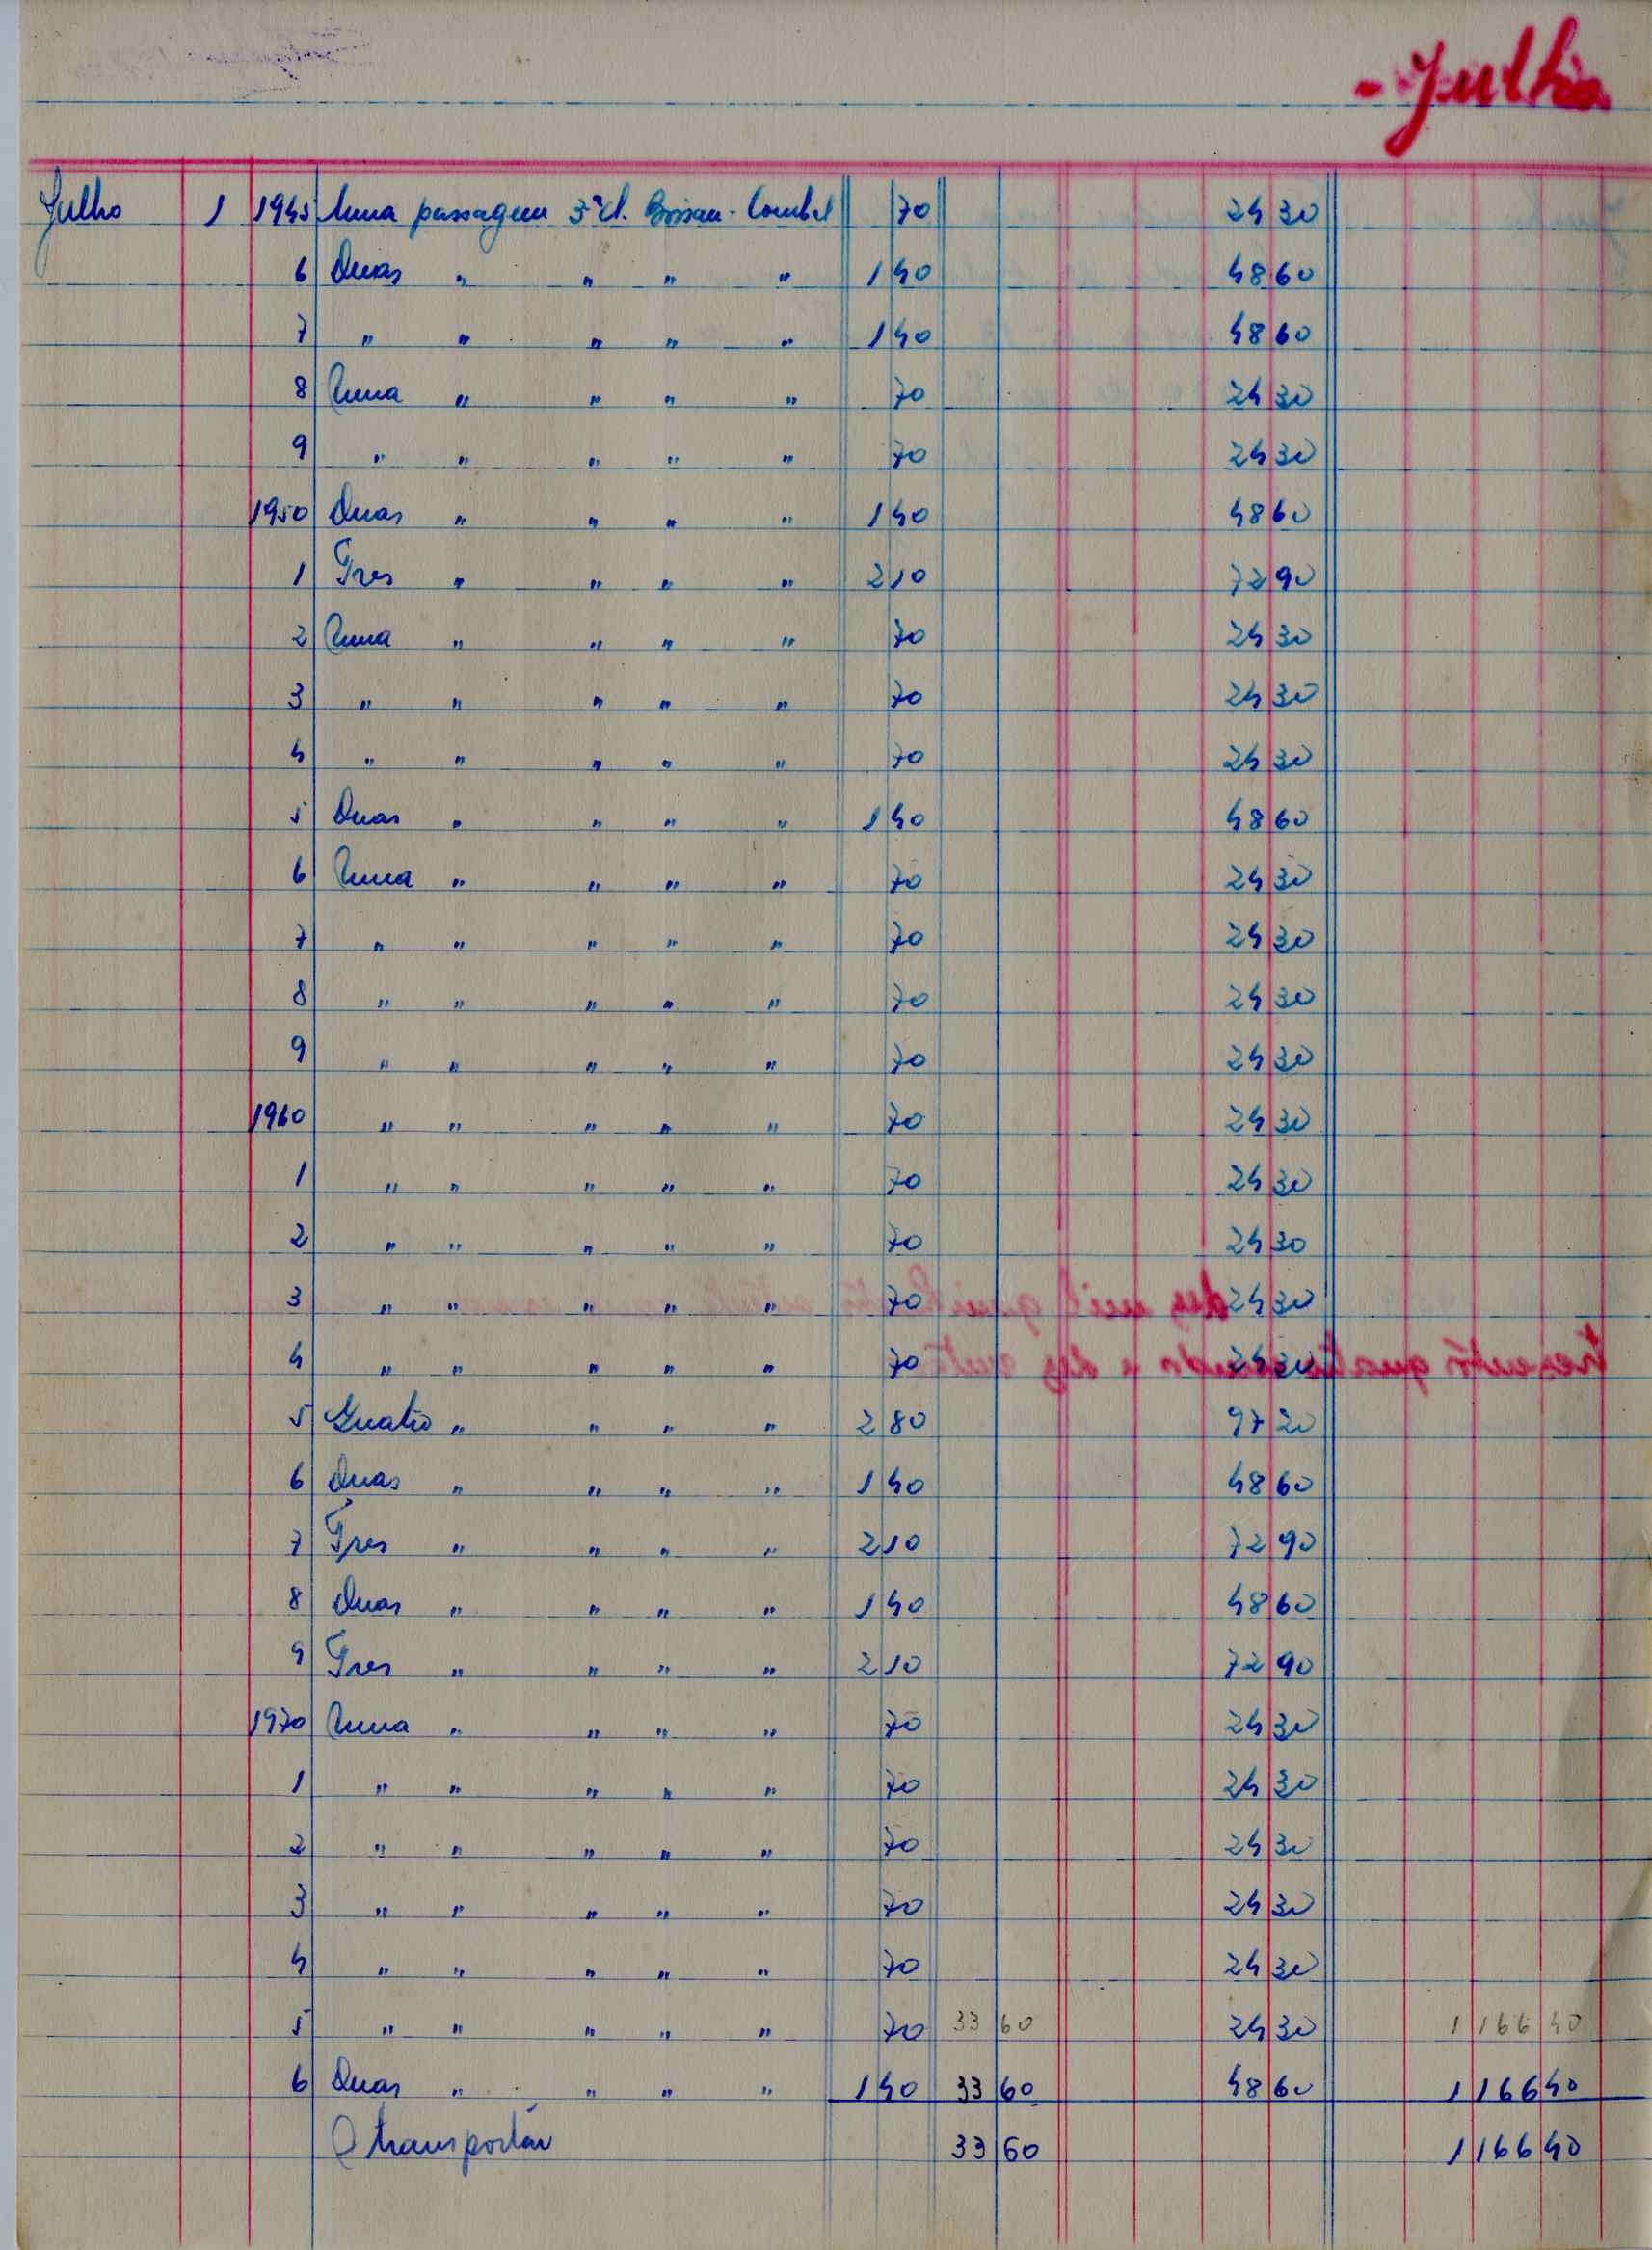 - Julho
Julho 1 1945 Uma passagem 3ª cl. Bissau - Combel 70 24 30
6 Duas " " " " 1 40 48 60
7 " " " " " 1 40 48 60
8 Uma " " " " 70 24 30
9 " " " " " 70 24 30
1950 Duas " " " " 1 40 48 60
1 Tres " " " " 2 10 72 90
2 Uma " " " " 70 24 30
3 " " " " " 70 24 30
4 " " " " " 70 24 30
5 Duas " " " " 1 40 48 60
6 Uma " " " " 70 24 30
7 " " " " " 70 24 30
8 " " " " " 70 24 30
9 " " " " " 70 24 30
1960 " " " " " 70 24 30
1 " " " " " 70 24 30
2 " " " " " 70 24 30
3 " " " " " 70 24 30
4 " " " " " 70 24 30
5 Quatro " " " " 2 80 97 20
6 Duas " " " " 1 40 48 60
7 Tres " " " " 2 10 72 90
8 Duas " " " " 1 40 48 60
9 Tres " " " " 2 10 72 90
1970 Uma " " " " 70 24 30
1 " " " " " 70 24 30
2 " " " " " 70 24 30
3 " " " " " 70 24 30
4 " " " " " 70 24 30
5 " " " " " 70 33 60 24 30 1 166 40
6 Duas " " " " 1 40 33 60 48 60 1 166 40
A transportar 33 60 1 166 40